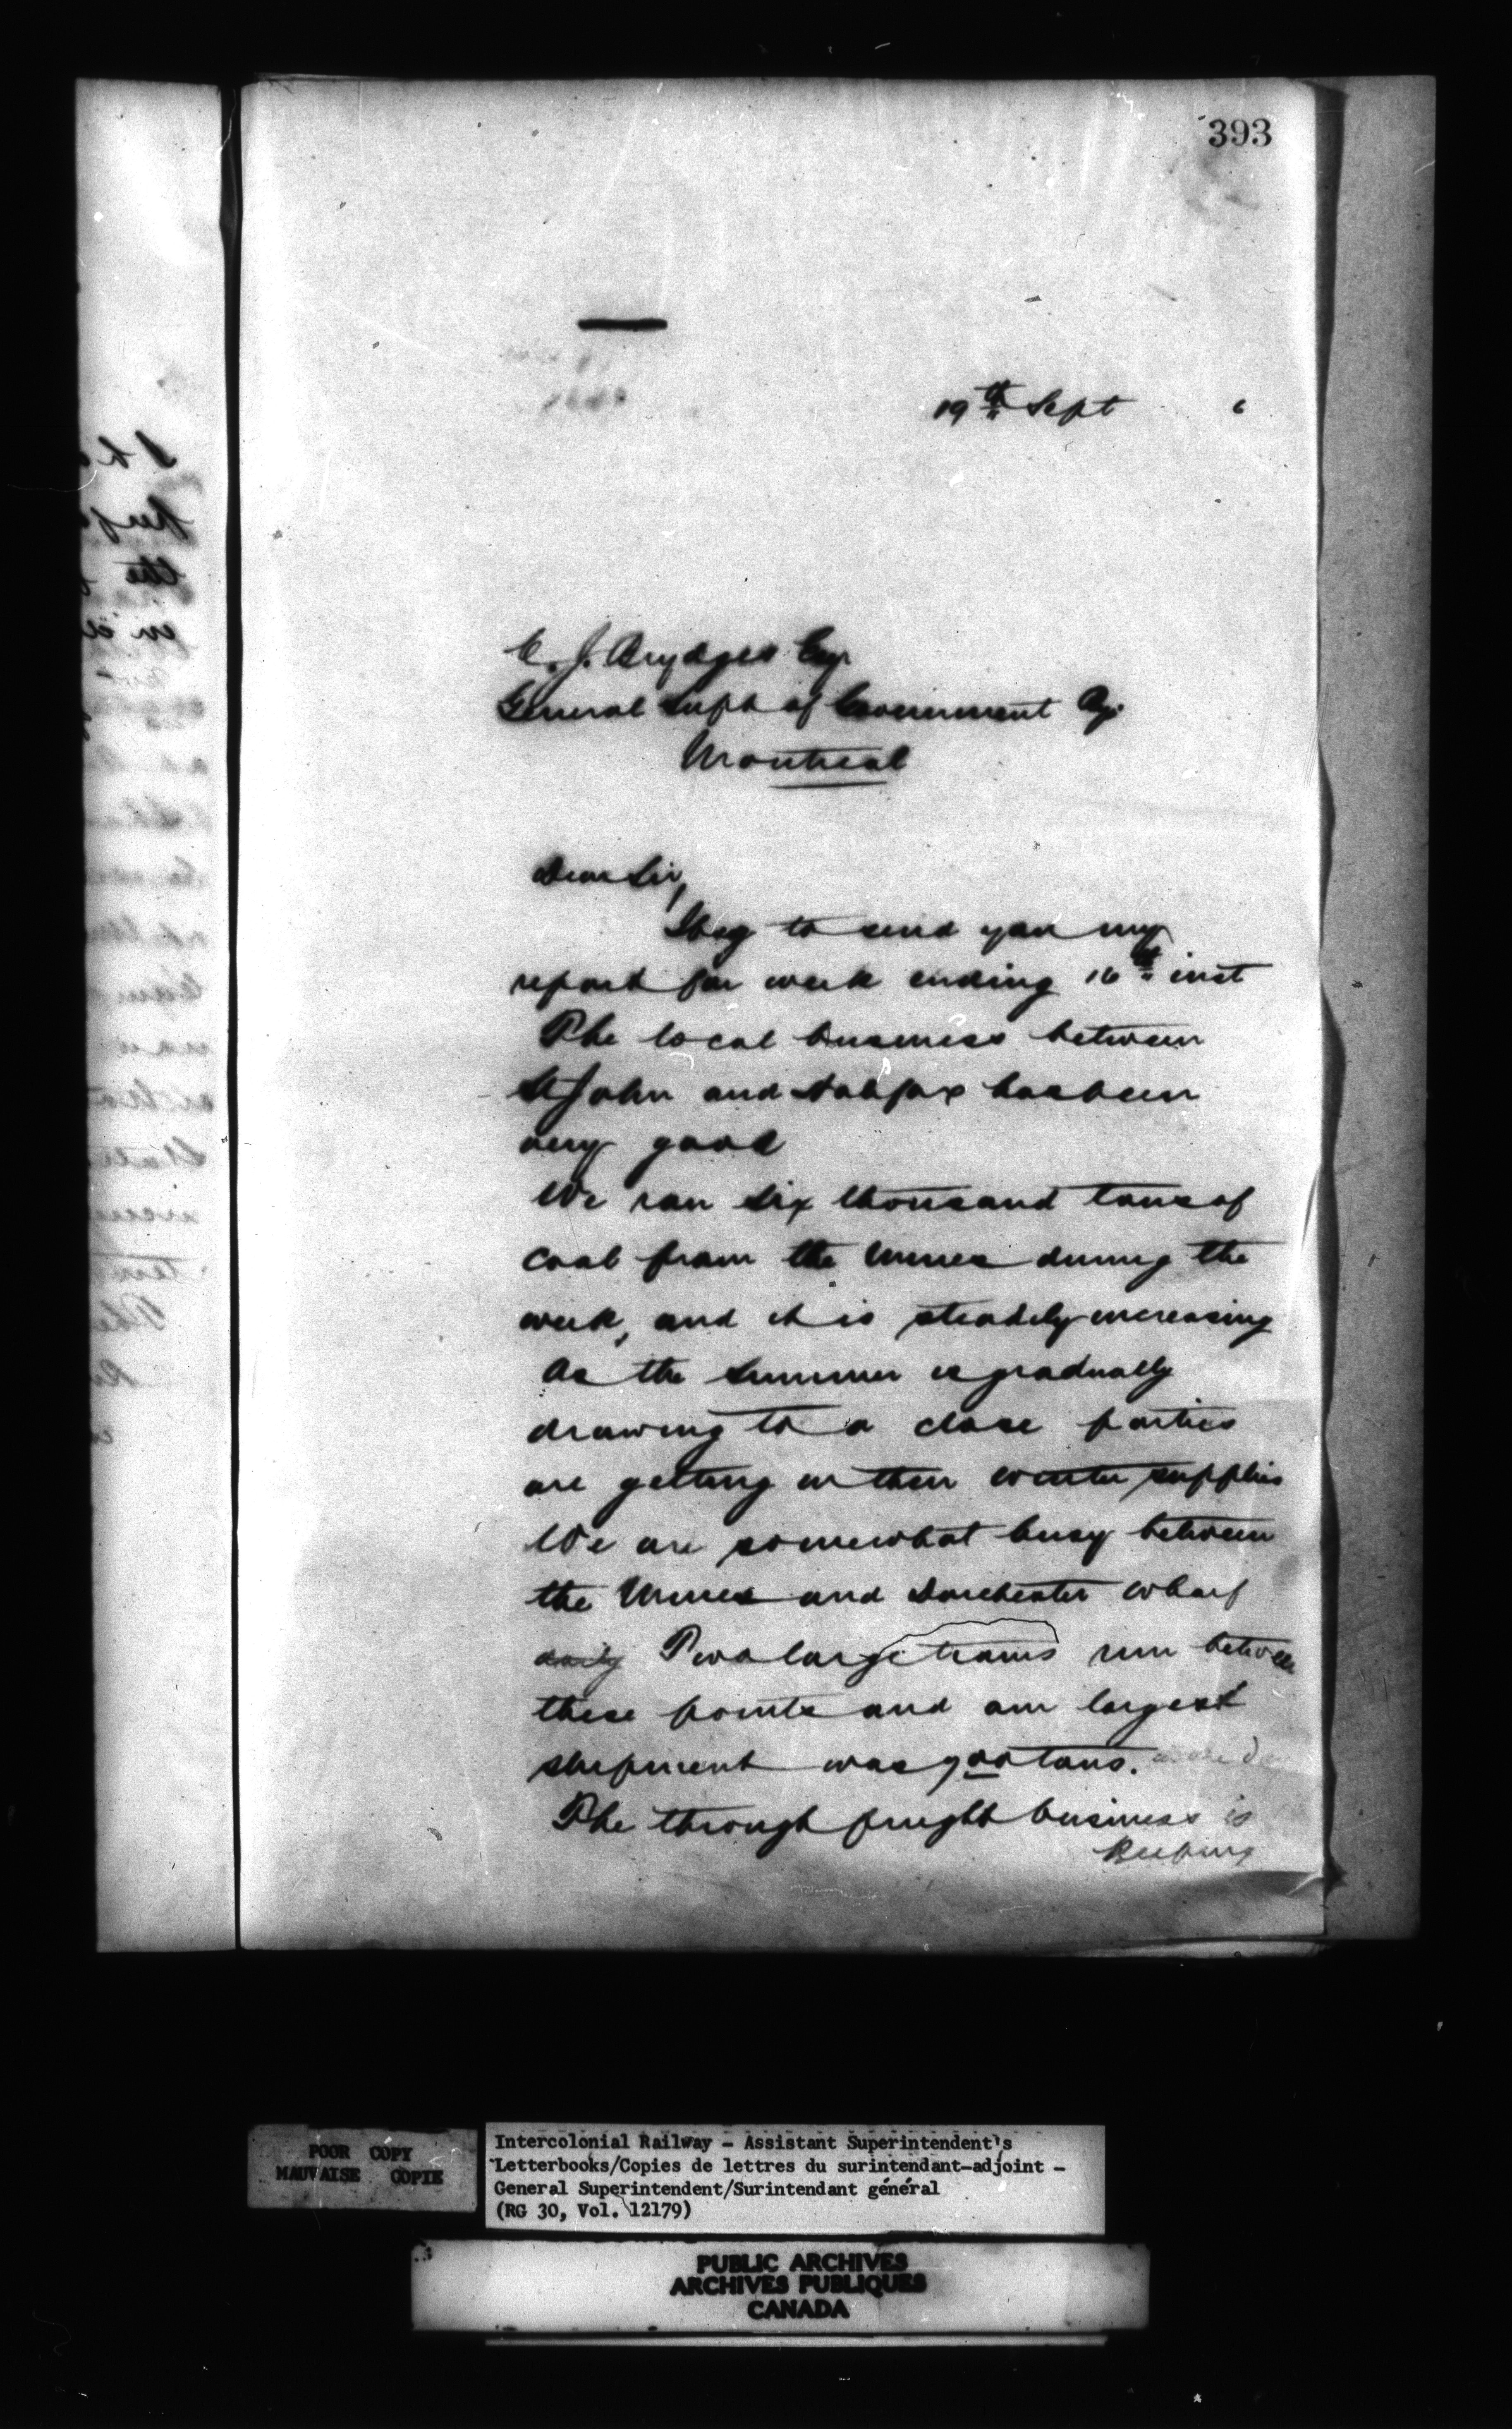 393
19th Sept 6
C. J. Brydges Esq
General Supt of Government Ry.
Montreal
Dear Sir,
I beg to send you my
report for week ending 16th inst
The local business between
St John and Halifax has been
very good
We ran six thousand tons of
coal from the Mines during the
week, and it is steadily increasing
As the Summer is gradually
drawing to a close parties
are getting in their winter supplies
We are somewhat busy between
the Mines and Dorchester wharf
daily Two large trains run between
these points and our largest
shipment was 900 tons.
The through freight business is
Keeping
POOR COPY
MAUVAISE COPIE
Intercolonial Railway - Assistant Superintendent's
Letterbooks/Copies de lettres du surintendant-adjoint -
General Superintendent/Surintendant général
(RG 30, Vol. 12179)
PUBLIC ARCHIVES
ARCHIVES PUBLIQUES
CANADA